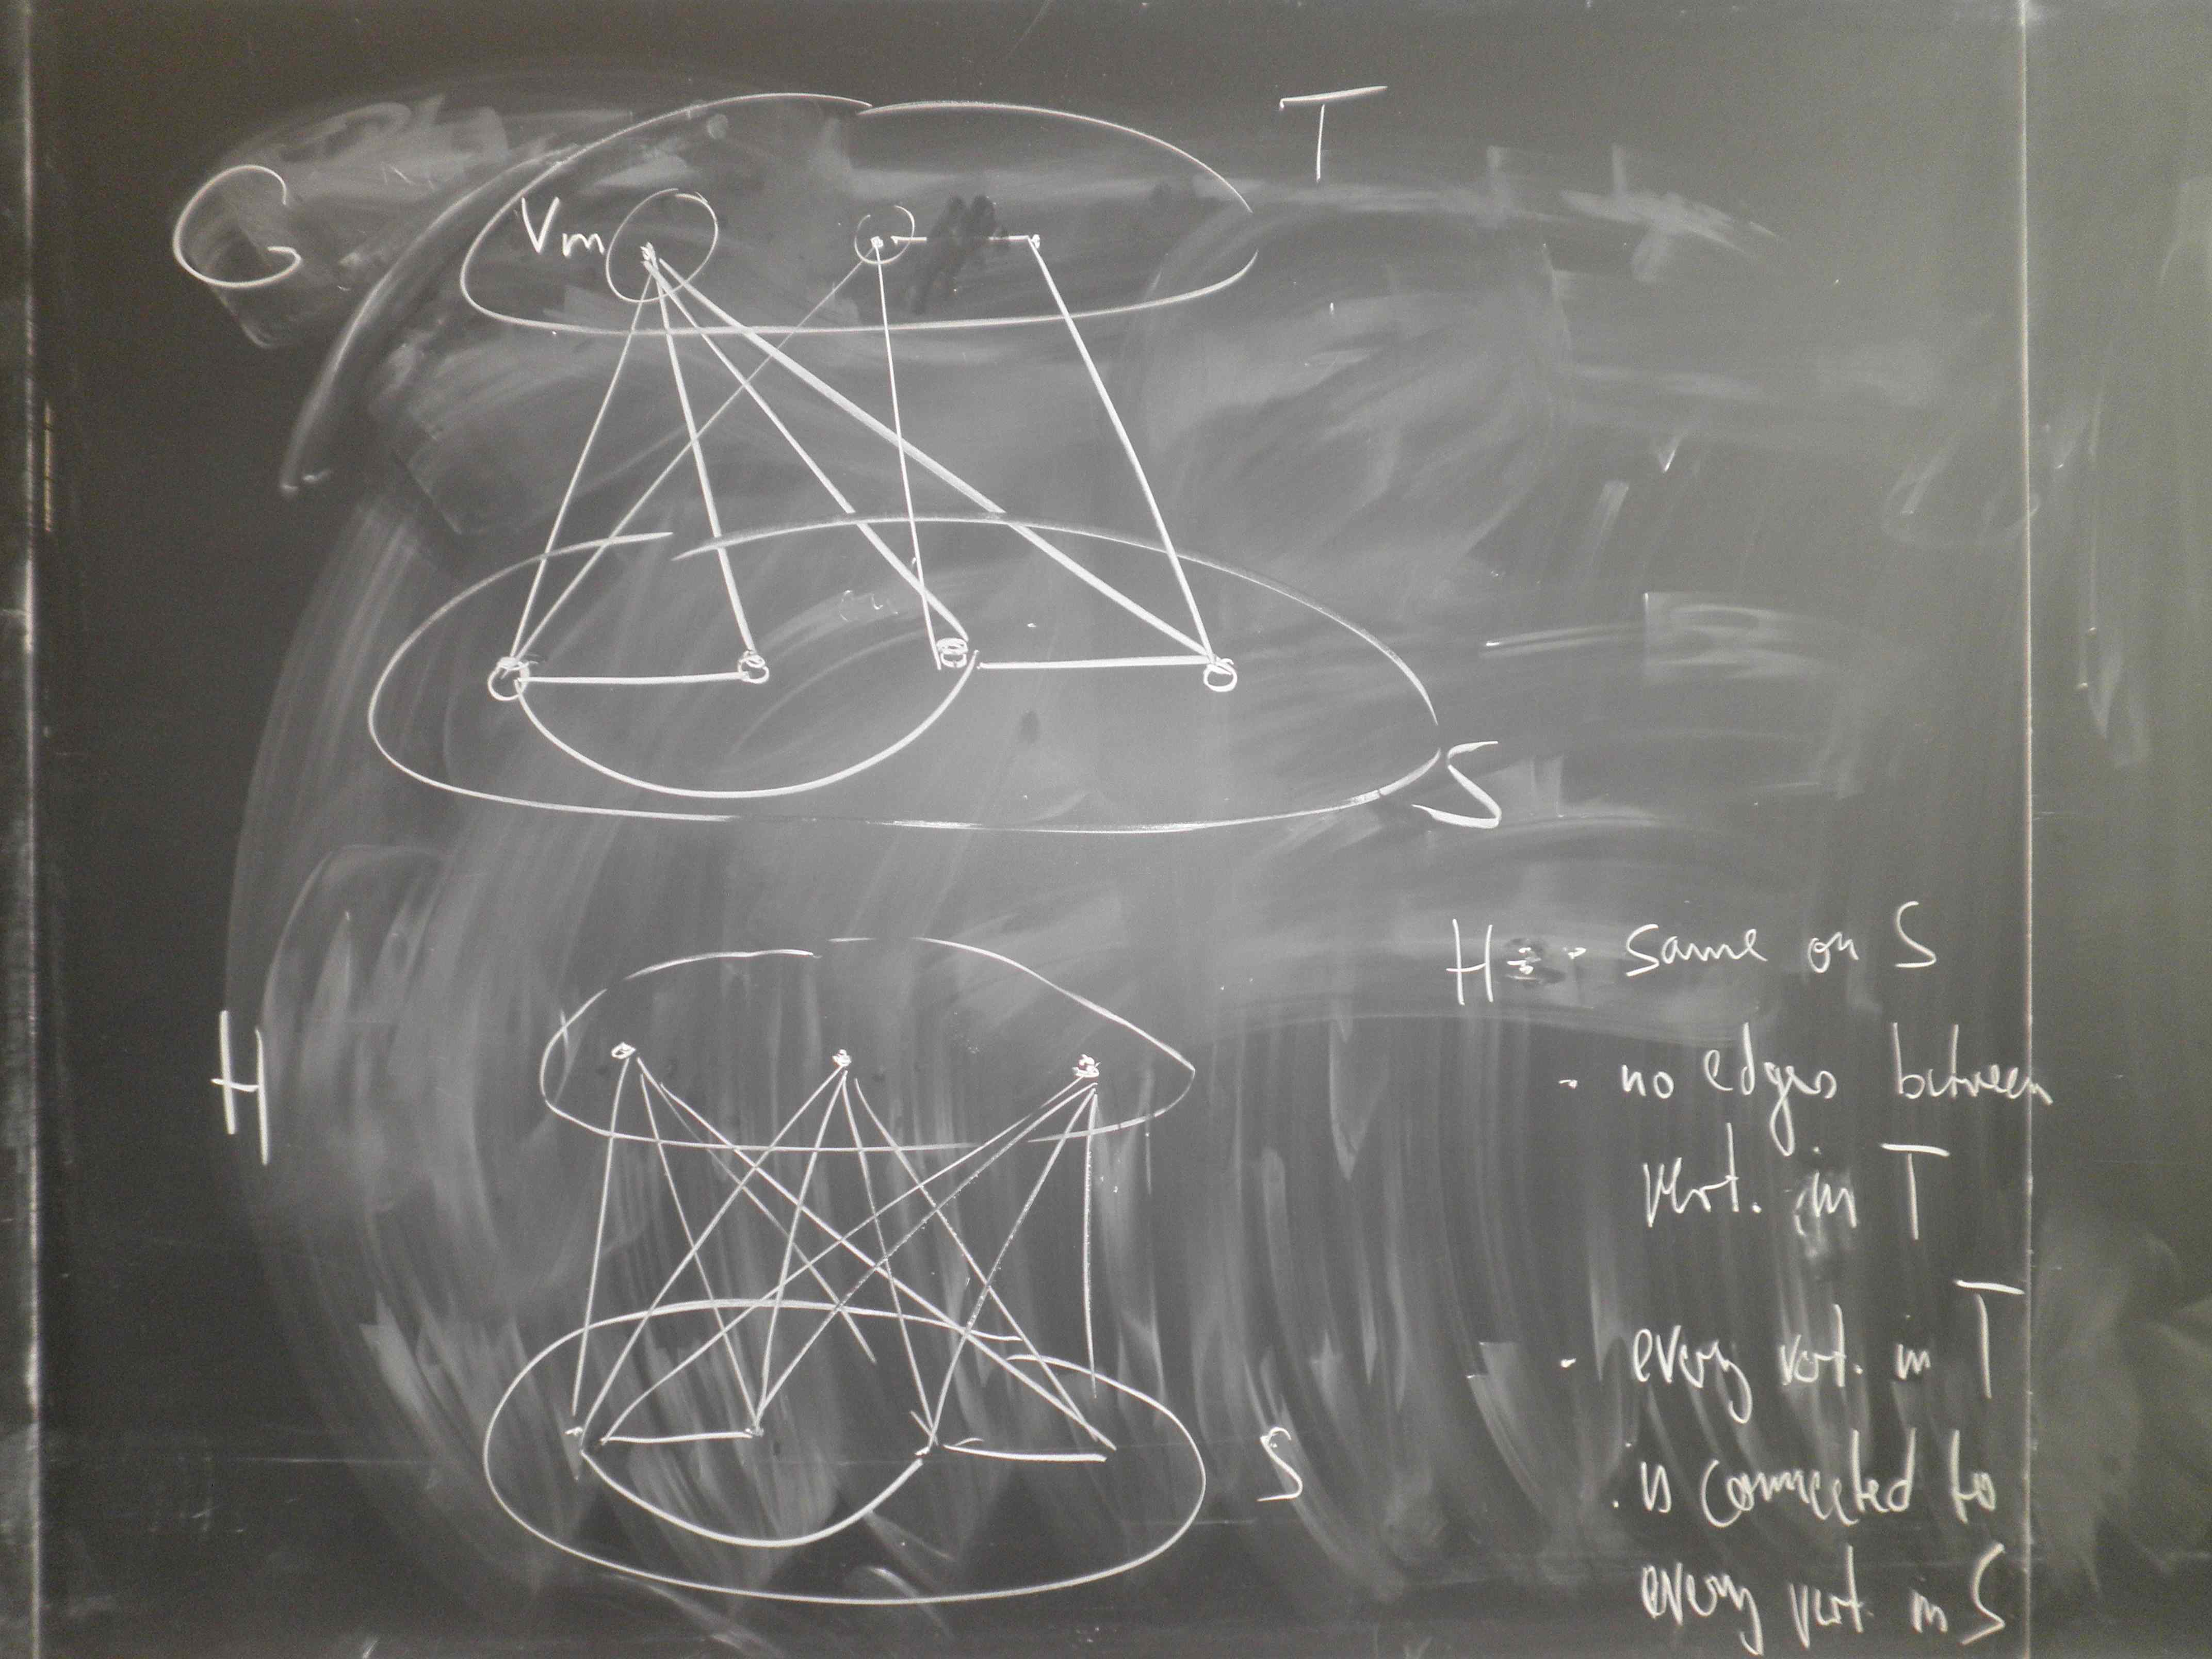 T
G
Vm
S
H
H : - same on S
- no edges between
vert. in T
- every vert. in T
is connected to
every vert. in S
S